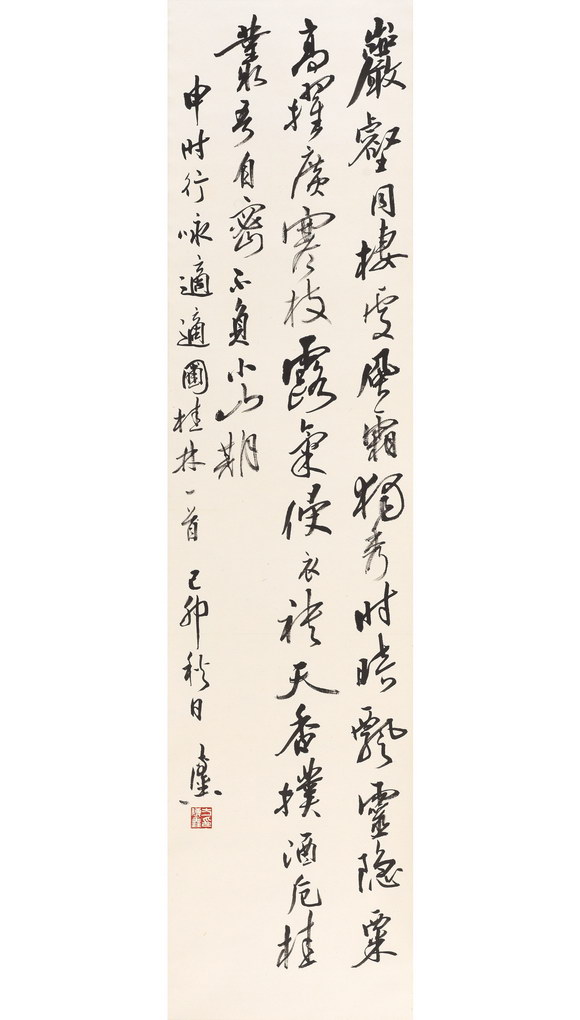 巖壑同棲處風霜獨秀时暗飄靈隱粟
高擢廣寒枝露氣侵衣袂天香撲酒卮桂
叢吾自密不負小山期
申时行咏適適圃桂林一首 己卯秋日